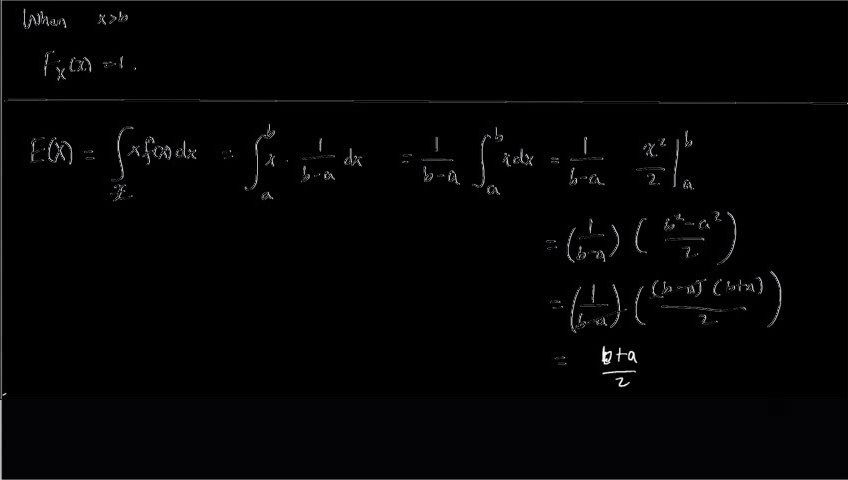 When x>b
F_X(x) = 1.
E(X) = ∫_x x f(x) dx = ∫_a^b x · 1/(b-a) dx = 1/(b-a) ∫_a^b x dx = 1/(b-a) x²/2 |_a^b
= (1/(b-a)) ((b²-a²)/2)
= (1/(b-a)) · ((b-a) (b+a)/2)
= (b+a)/2